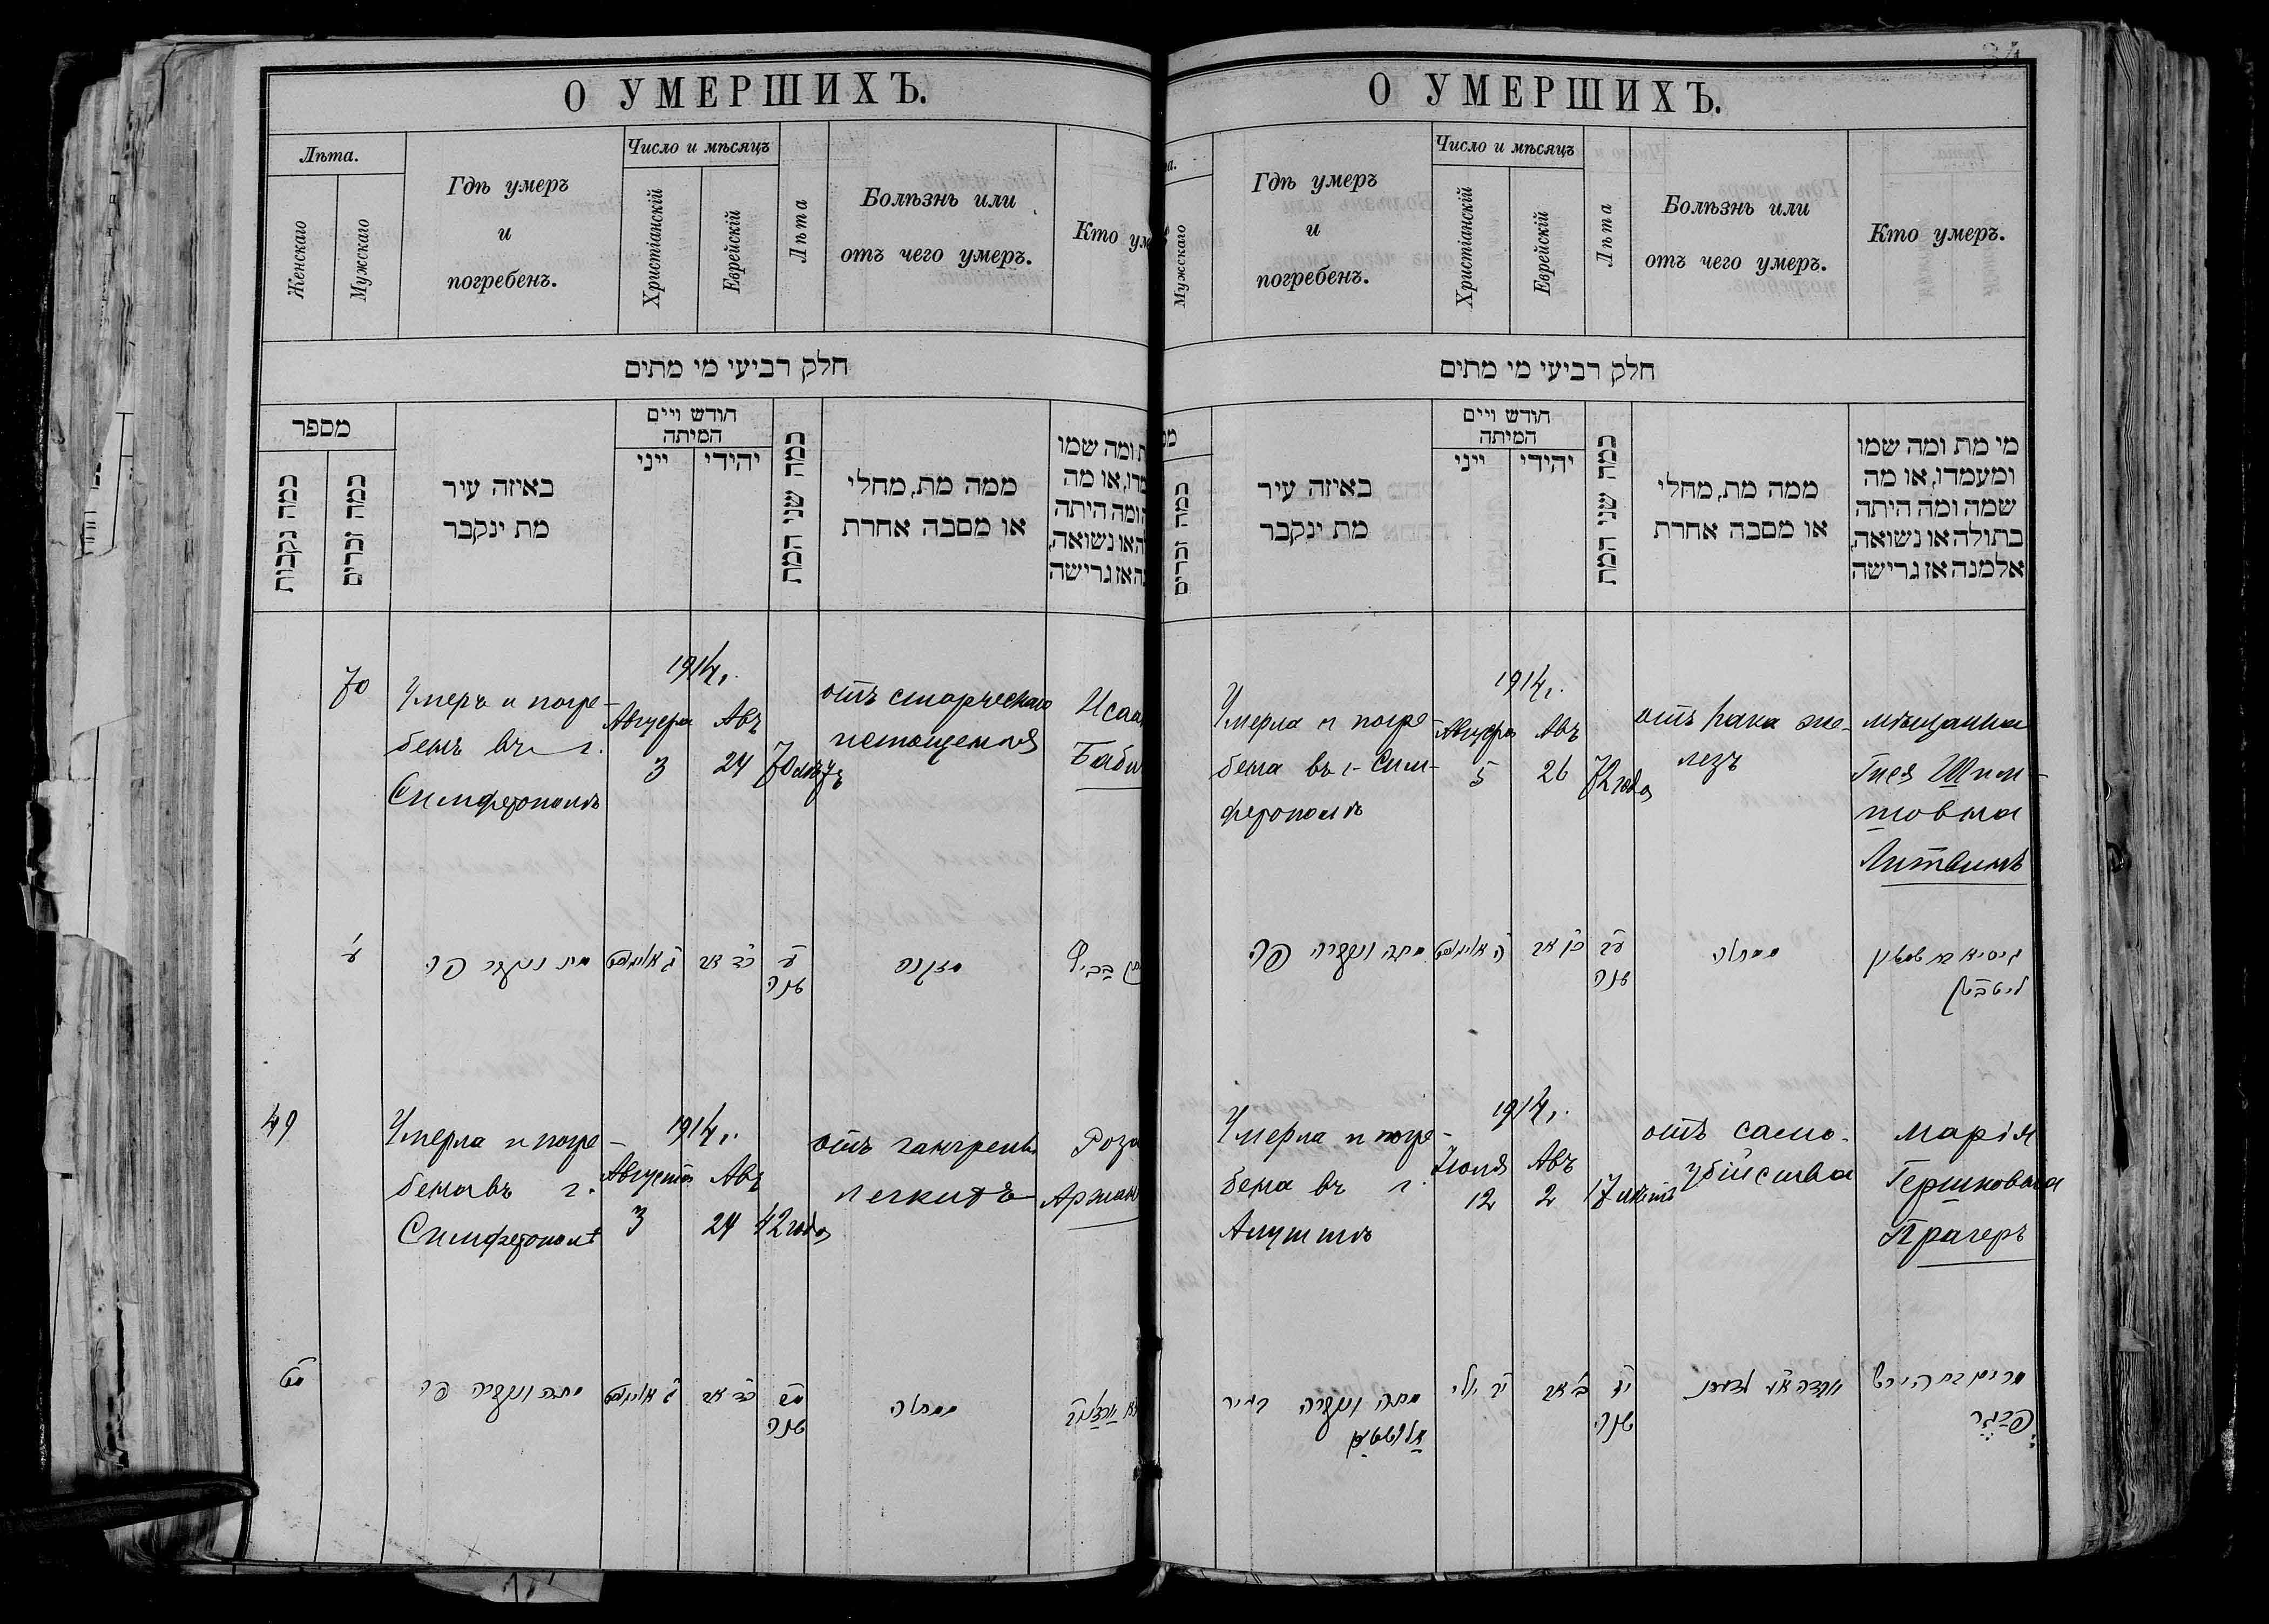 О УМЕРШИХЪ.
Лѣта.
Женскаго
Мужскаго
Гдѣ умеръ
и
погребенъ.
Число и мѣсяцъ
Христіанскій
Еврейскій
Лѣта
Болѣзнь или
отъ чего умеръ.
Кто уме
חלק רביעי מי מתים
מספר
כמה נקבות
כמה זכרים
באיזה עיר
מת ינקבר
חודש ויים
המיתה
ייני
יהידי
כמה שני המת
ממה מת, מחלי
או מסבה אחרת
ת ומה שמו
מדו, או מה
הומה היתה
ה או נשואה,
ה אז גרישה
70
Умеръ и погре-
бенъ въ г.
Симферополѣ
1914 г.
Августа
3
Авъ
24
70 лѣтъ
отъ старческаго
истощенія
Исаак
Баби
ע׳
מת ונקבר פה
ג אויגוסט
כד אב
ע
שנה
מזקנה
49
Умерла и погре-
бена въ г.
Симферополѣ
1914 г.
Августа
3
Авъ
24
42 года
отъ гангрены
легкихъ
Роза
מט
מתה ונקברה פה
ג אויגוסט
כד אב
מב
שנה
ממחלה
34
О УМЕРШИХЪ.
а.
Мужскаго
Гдѣ умеръ
и
погребенъ.
Число и мѣсяцъ
Христіанскій
Еврейскій
Лѣта
Болѣзнь или
отъ чего умеръ.
Кто умеръ.
חלק רביעי מי מתים
מס
כמה זכרים
באיזה עיר
מת ינקבר
חודש ויים
המיתה
ייני
יהידי
כמה שני המת
ממה מת, מחלי
או מסבה אחרת
מי מת ומה שמו
ומעמדו, או מה
שמה ומה היתה
בתולה או נשואה,
אלמנה אז גרישה
Умерла и погре-
бена въ г. Сим-
ферополѣ
1914 г.
Августа
5
Авъ
26
72 года
отъ рака же-
лезъ
мѣщанка
Гися Шим-
товна
Литвинъ
מתה ונקברה פה
ה אויגוסט
כו אב
עב
שנה
ממחלה
Умерла и погре-
бена въ г.
Алуштѣ
1914 г.
Іюля
12
Авъ
2
17 лѣтъ
отъ само-
убійства
Марія
Гершковна
Прагеръ
מתה ונקברה בעיר
אלושטא
יב יולי
ב אב
יז
שנה
מרים בת הירש
פראגר